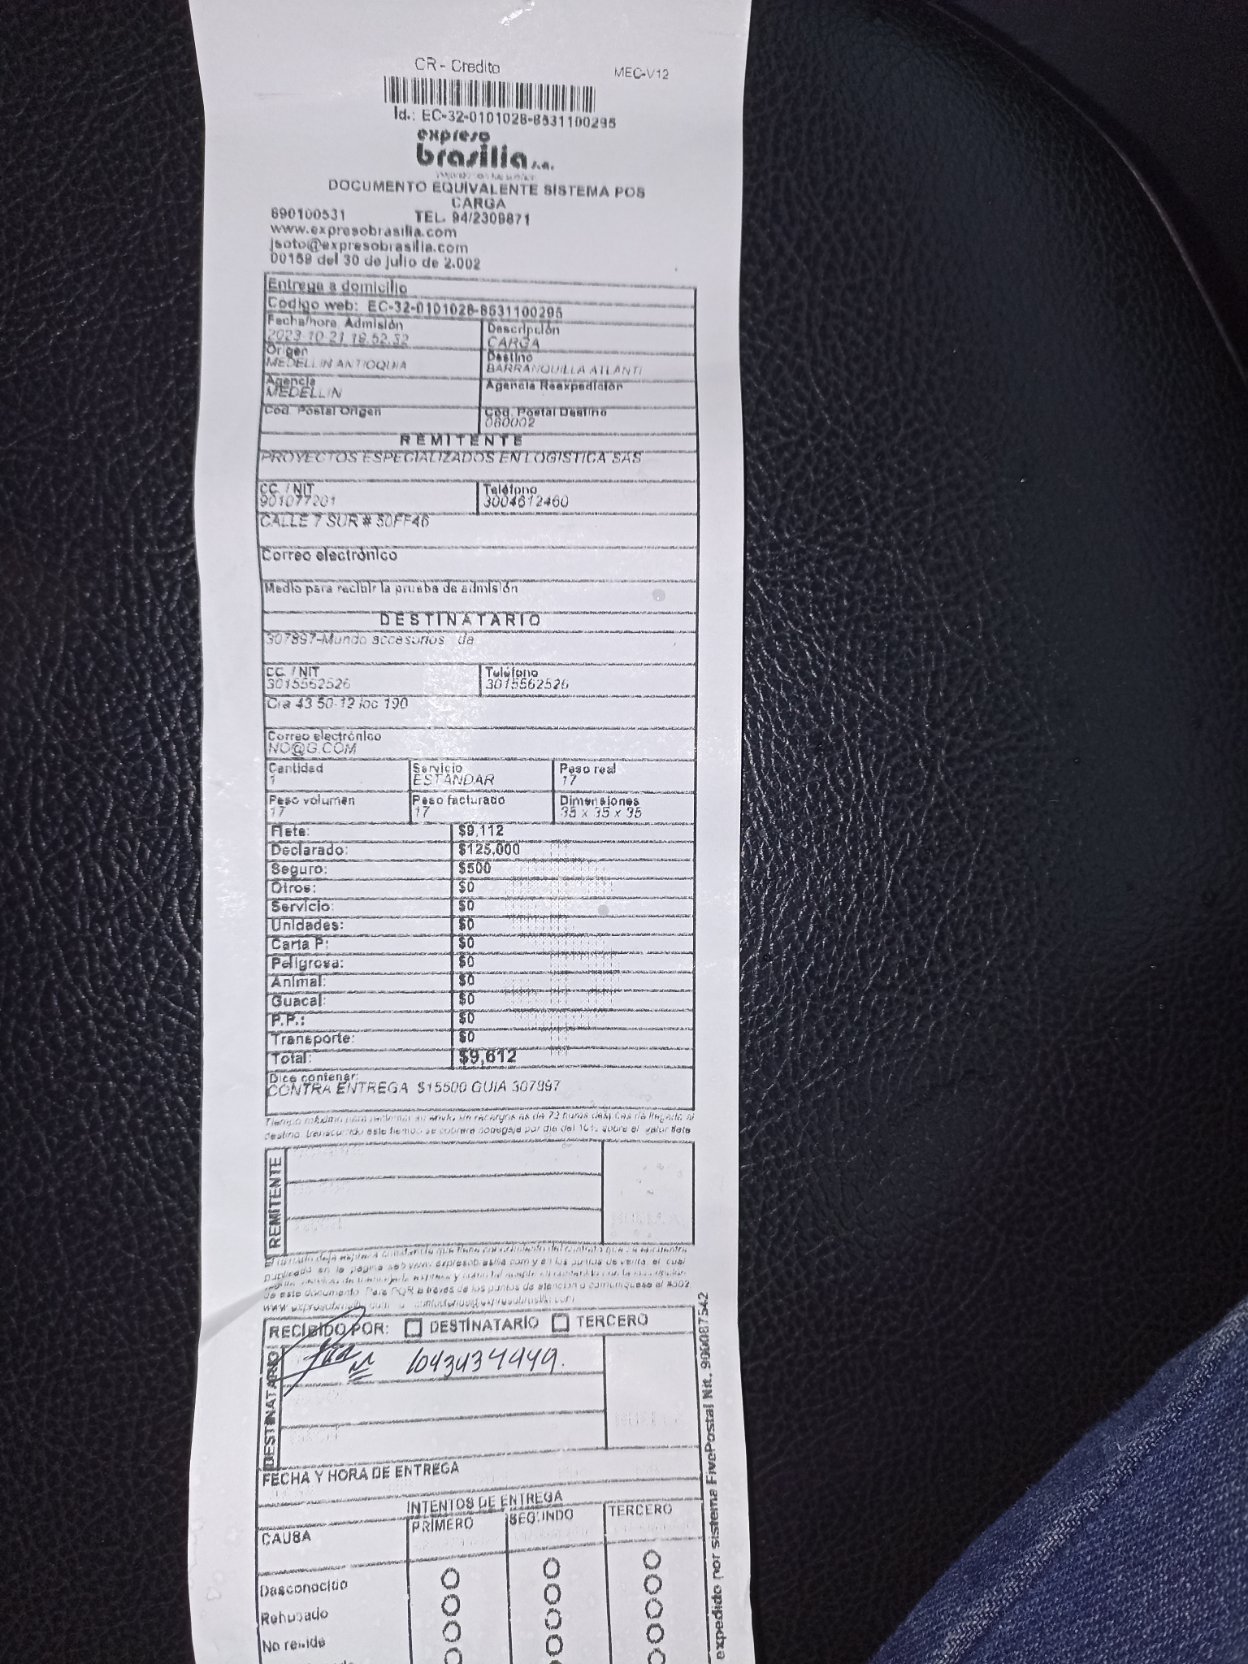 CR - Credito MEC-V12
Id.: EC-32-0101028-8531100295
expreso
brasilia s.a.
DOCUMENTO EQUIVALENTE SISTEMA POS
CARGA
890100531 TEL. 94/2309871
www.expresobrasilia.com
jsoto@expresobrasilia.com
00159 del 30 de julio de 2.002
Entrega a domicilio
Codigo web: EC-32-0101028-8531100295
Fecha/hora Admisión Descripción
2023-10-21 18:52:32 CARGA
Origen Destino
MEDELLIN ANTIOQUIA BARRANQUILLA ATLANTI
Agencia Agencia Reexpedición
MEDELLIN
Cod. Postal Origen Cod. Postal Destino
080002
REMITENTE
PROYECTOS ESPECIALIZADOS EN LOGISTICA SAS
CC. / NIT Teléfono
901077201 3004612460
CALLE 7 SUR # 50FF46
Correo electrónico
Medio para recibir la prueba de admisión
DESTINATARIO
307897-Mundo accesorios de
CC. / NIT Teléfono
3015562526 3015562526
Cra 43 50-12 loc 190
Correo electrónico
NO@G.COM
Cantidad Servicio Peso real
1 ESTANDAR 17
Peso volumen Peso facturado Dimensiones
17 17 35 x 35 x 35
Flete: $9,112
Declarado: $125,000
Seguro: $500
Otros: $0
Servicio: $0
Unidades: $0
Carta P: $0
Peligrosa: $0
Animal: $0
Guacal: $0
P.P.: $0
Transporte: $0
Total: $9,612
Dice contener:
CONTRA ENTREGA $15500 GUIA 307897
REMITENTE
RECIBIDO POR: DESTINATARIO TERCERO
DESTINATARIO
1043434949.
FECHA Y HORA DE ENTREGA
INTENTOS DE ENTREGA
CAUSA PRIMERO SEGUNDO TERCERO
Desconocido
Rehusado
No reside
expedido por sistema FivePostal Nit. 900087542